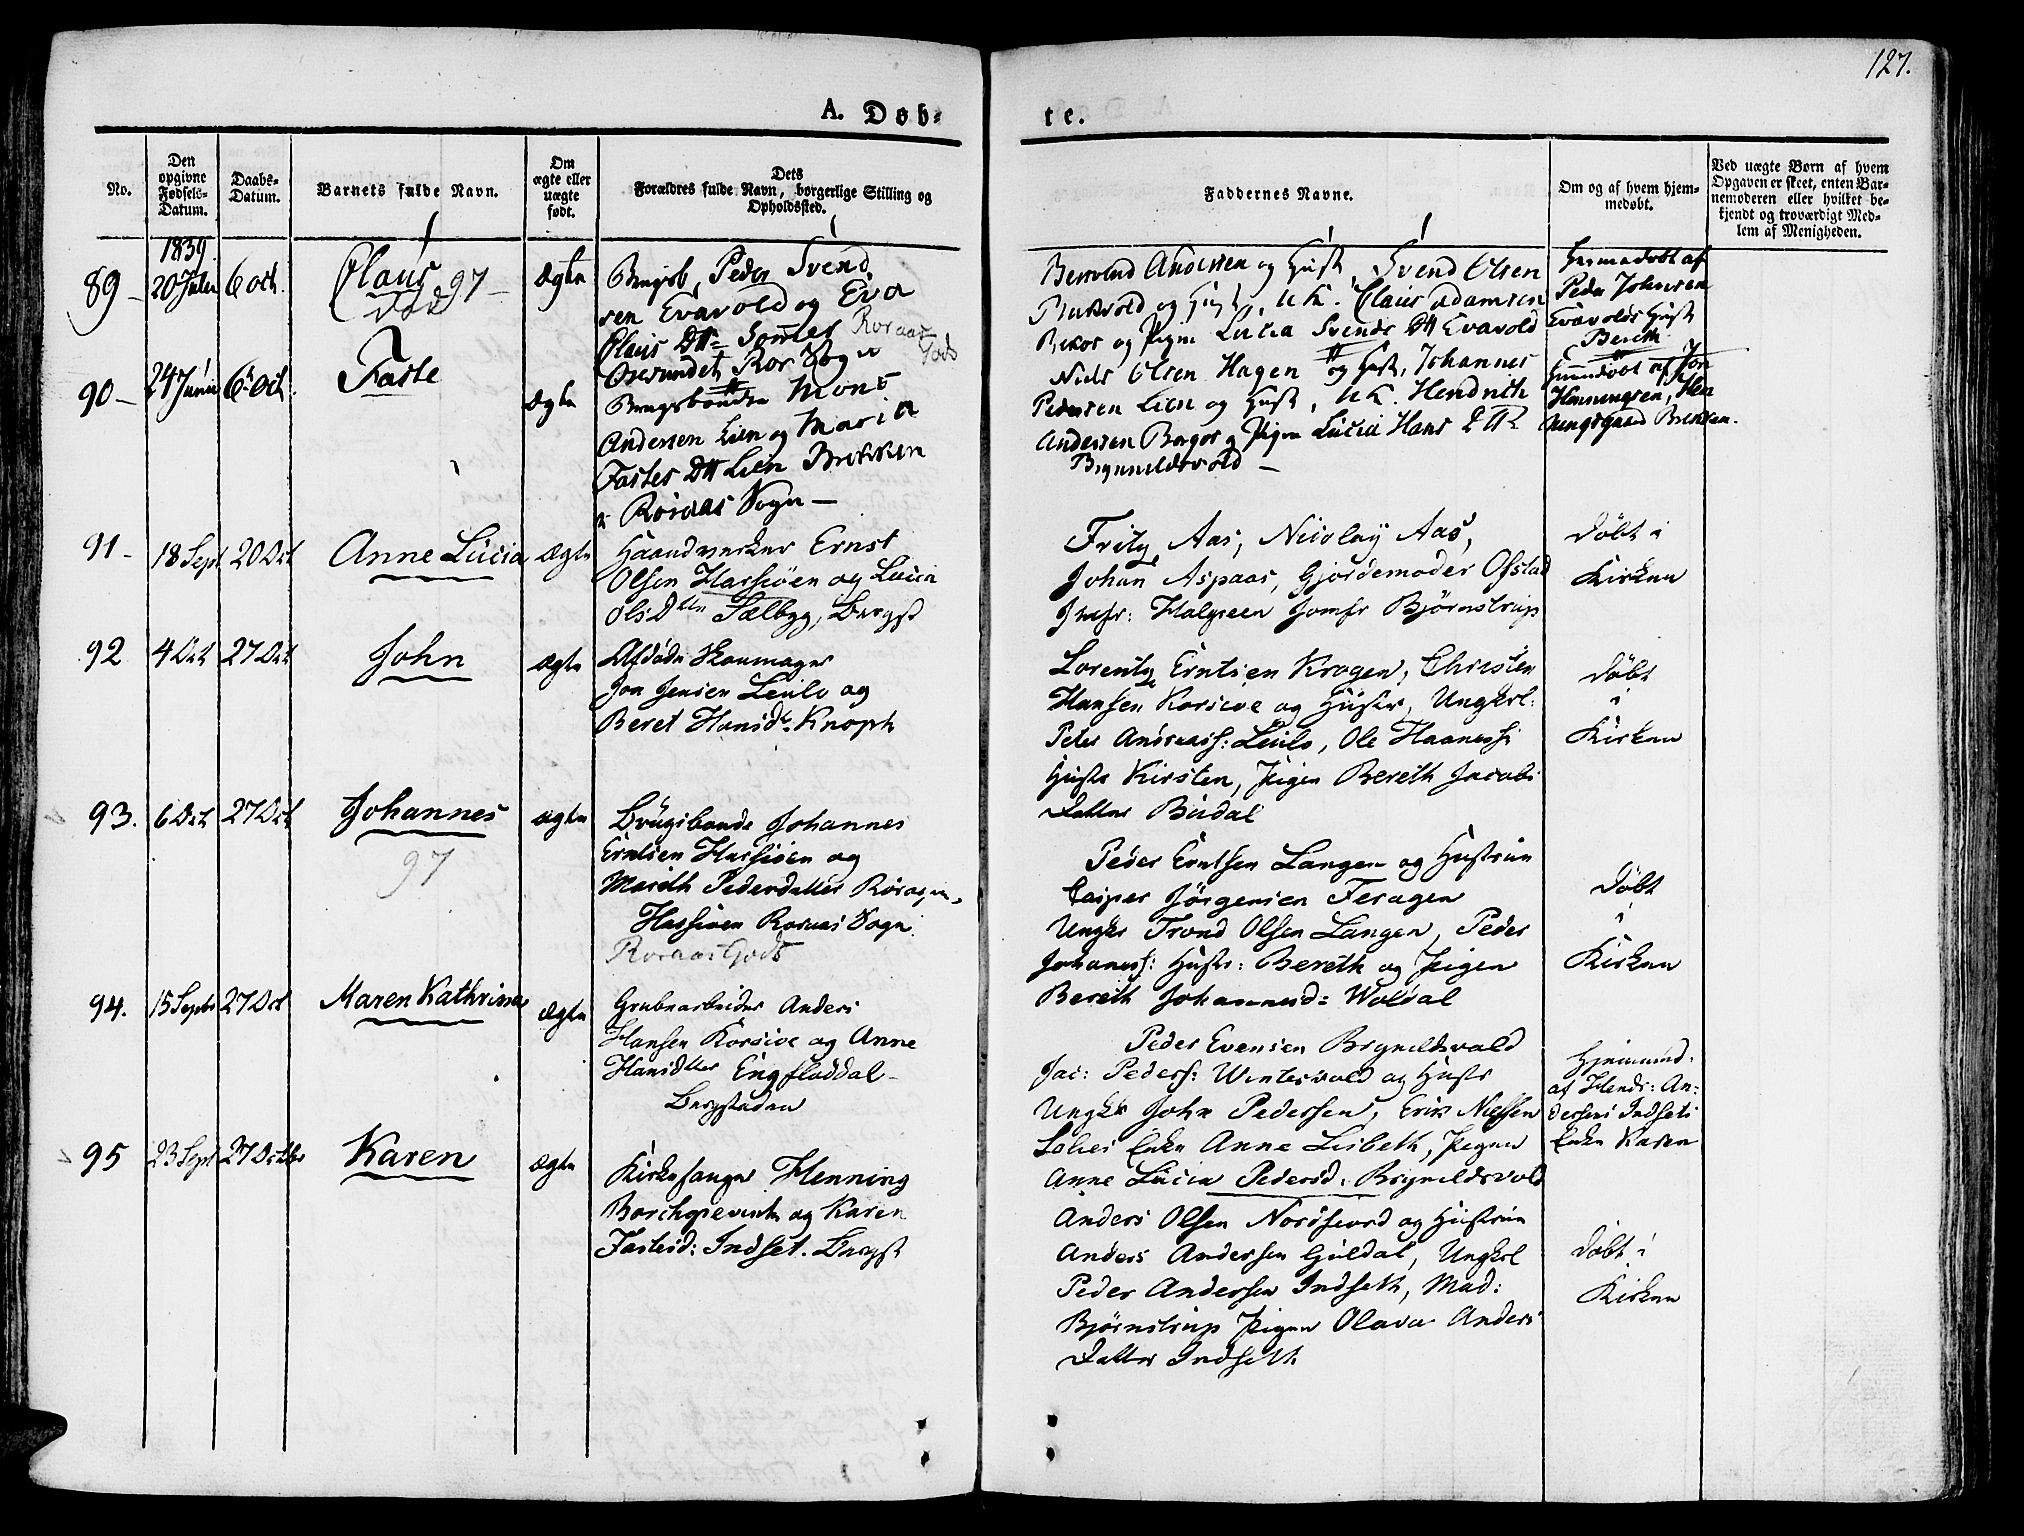 127.
A. Døb-
te.
No.
Den opgivne Fødsels-Datum.
Daabs-Datum.
Barnets fulde Navn.
Om ægte eller uægte født.
Dets Forældres fulde Navn, borgerlige Stilling og Opholdssted.
Faddernes Navne.
Om og af hvem hjem-medøbt.
Ved uægte Børn af hvem Opgaven er skeet, enten Bar-nemoderen eller hvilket be-kjendt og troværdigt Med-lem af Menigheden.
1839.
89 -
20 Julii
6 oct.
Claus
død 97 -
Ægte
Brugsb. Peder Svend
sen Evavold og Eva
Claus Dtt
Røraas Gods
Andersen og Hust. Svend Olsen
og Hust, UK. Claus Adamsen
og Pigen Lucia Svends Dtt Evavold
Hiemmedøbt af
Peder Johnsen
Evavolds Hust
Bereth
90 -
24 Junii
6 Oct.
Faste
Ægte
Brugsbonde Mons
Andersen Lien og Maria
Fastes Dtt Lien Brekken
Røraas Sogn -
Niels Olsen Hagen og Hust, Johannes
Pedersen Lien og Hust, UK. Hendrich
Andersen Borgos og Pigen Lucia Hans Dtt
Brynnildsvold -
Hiemmedøbt af Jon
Henningsen, Hen
ningsgaard Brekken.
91 -
18 Sept
20 Oct
Anne Lucia
Ægte
Haandverker Ernst
Olsen Hassiøen og Lucia
Olsdtr Sælbyg, Bergst
Fritz Aas, Nicolay Aas,
Johan Aspaas, Gjordemoder Ofstad
Jmfr: Jomfr Bjørnstrup
Døbt i
Kirken
92
4 Oct
27 Oct
John
Ægte
Afdøde Skoemager
Jon Jensen Leulo og
Beret Hansdr. Knoph
Lorentz Erntsen Kragen, Christen
Hansen Korsive og Hustr, Ungkrl:
Peter Andreass: Leulo, Ole Haaness:
Hustr Kirsten, Pigen Bereth Jacobs
Datter Budal
Døbt
i
Kirken
93.
6 Oct
27 Oct
Johannes
97
Ægte
Brugsbonde Johannes
Erntsen Hassiøen og
Mareth Pedersdatter
Hassiøen Røraas Sogn.
Røraas Gods
Peder Erntsen Langen og Hustrue
Casper Jörgensen Feragen
Ungkr Trond Olsen Langen, Peder
Johaness: Hustr: Bereth og Pigen
Bereth Johannesd: Woldal
Døbt
i
Kirken
94.
15 Septr
27 Oct
Maren Kathrina
Ægte
Grubearbeider Anders
Hansen Korsive og Anne
Hansdtter Engfloddal -
Bergstaden
Peder Evensen Brynildsvold
Jac: Peders: Wintervold og Hustr
Ungkr John Pedersen, Erik Nielsen
Enke Anne Lisbeth, Pigen
Anne Lucia Pedersd. Brynildsvold
Hjemmed:
af Hendr: An-
dersens Indsets
Enke Karen
95
23 Sept
27 Octbr
Karen
Ægte
Kirkesanger Henning
Borchgrevink og Karen
Fastesd: Indset. Bergst
Anders Olsen Nordfiord og Hustrue
Anders Andersen Guldal, Ungkrl
Peder Andersen Indseth, Mad:
Bjørnstrup Pigen Olava Anders
Datter Indseth
Døbt i
Kirken